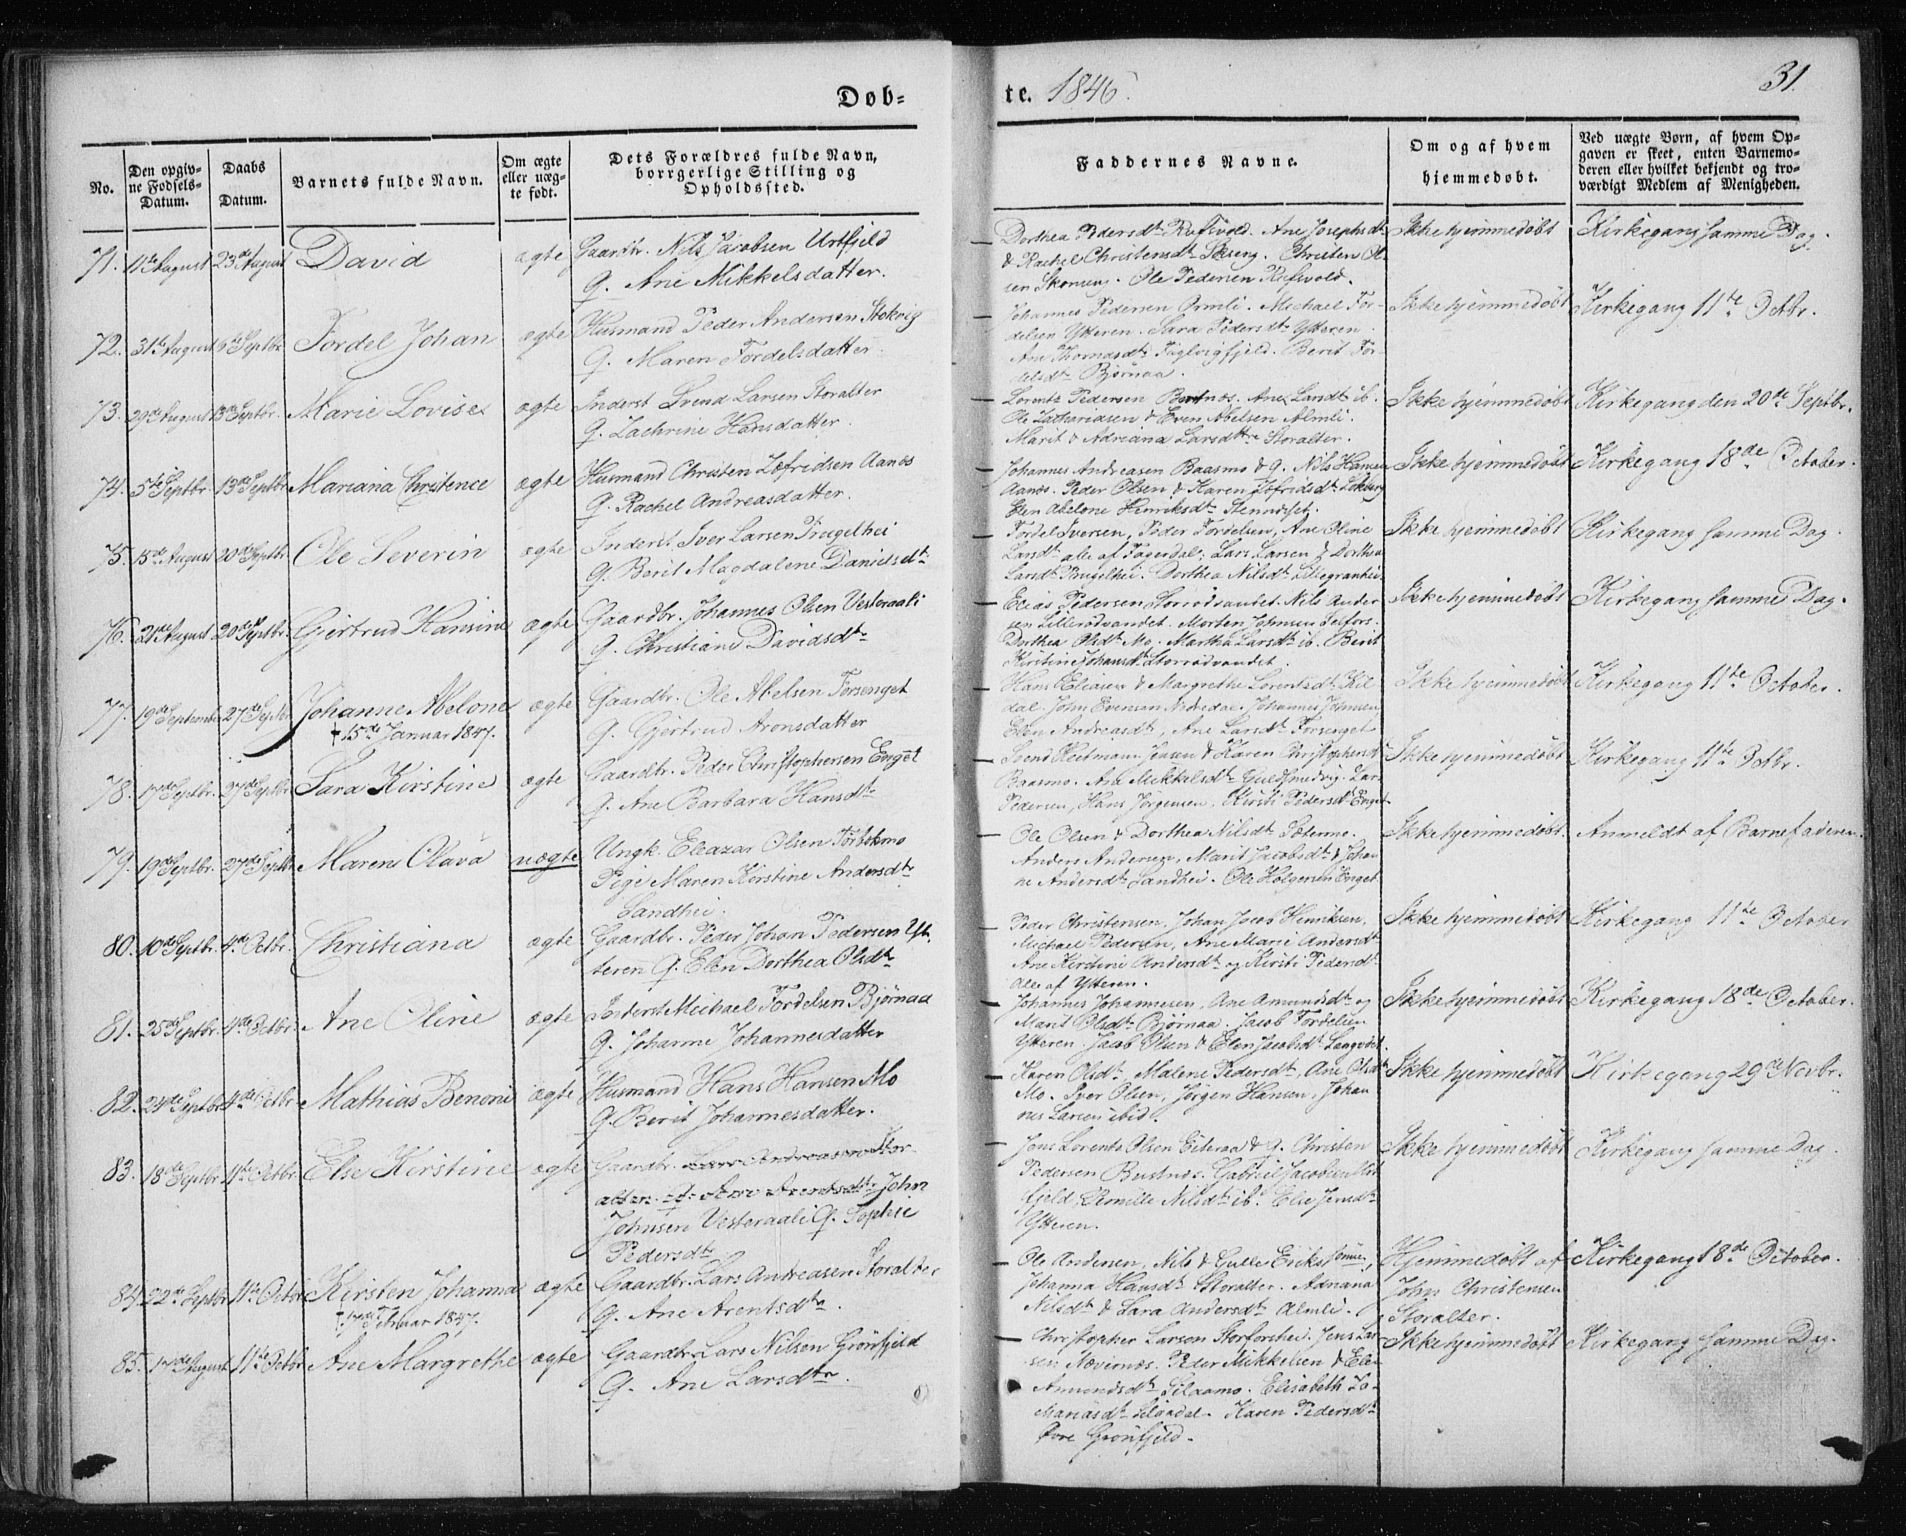 Døb=
te. 1846.
31.
No.
Den opgiv-
ne Fødsels-
Datum.
Daabs
Datum.
Barnets fulde Navn.
Om ægte
eller uæg-
te født.
Dets Forældres fulde Navn,
borrgerlige Stilling og
Opholdssted.
Faddernes Navne.
Om og af hvem
hjemmedøbt.
Ved uægte Børn, af hvem Op-
gaven er skeet, enten Barnemo-
deren eller hvilket bekjendt og tro-
værdigt Medlem af Menigheden.
71. 11te August 23de August David ægte Gaardbr. Nils Jacobsen Urtfjeld
G. Ane Mikkelsdatter.
Dorthea Pedersdtr Rufsvold. Ane Josephsdtr
& Rachel Christensdtr. Christen Ol-
sen Skonseng. Ole Pedersen Rufsvold.
Ikke hjemmedøbt
Kirkegang samme Dag.
72. 31te August 6te Septbr. Fordel Johan ægte Husmand Peder Andersen Stokvig
G. Maren Fordelsdatter
Johannes Pedersen Ormli. Michael For-
delsen Ytteren. Sara Pedersdt Ytteren.
Ane Thomdsdt Fuglvigfjeld. Berit For-
delsdt Bjørnaa.
Ikke hjemmedøbt
Kirkegang 11te Octbr.
73. 29de August 13de Septbr. Marie Lovise ægte Inderst Svend Larsen Storalter
G. Zachrine Hansdatter.
Lorentz Pedersen Bustnæs. Ane Larsdt ib.
Ole Zachariasen & Even Abelsen Almli.
Marit & Adriana Larsdttre Storalter.
Ikke hjemmedøbt
Kirkegang den 20de Septbr.
74. 5te Septbr. 13de Septbr Mariana Christence ægte Husmand Christen Zefridsen Aanæs
G. Rachel Andreasdatter.
Johannes Andreasen Baasmo & G. Nils Hansen
Aanæs. Peder Olsen & Karen Zefridsdt
Elen Abelone Henriksdt Stenneset.
Ikke hjemmedøbt
Kirkegang 18de October.
75. 15de August 20de Septbr. Ole Severin ægte Inderst Iver Larsen Trugelhei
G. Berit Magdalene Danielsdt
Fordel Iversen, Peder Fordelsen, Ane Oline
Larsdt alle af Fagerdal. Lars Larsen & Dorthea
Larsdt Trugelhei. Dorthea Nilsdt
Ikke hjemmedøbt
Kirkegang samme Dag.
76. 21de August 20de Septbr. Gjertrud Hansine ægte Gaardbr. Johannes Olsen Vesteraali
G. Christiane Davidsdtr
Elias Pedersen Storrødvandet. Nils Ander-
sen Lillerødvandet. Morten Johnsen Selfors.
Dorthea Olsdt Mo. Martha Larsdt ib. Berit
Kirstine Johansdt Storrødvandet.
Ikke hjemmedøbt
Kirkegang samme Dag.
77. 19de September 27de Septbr Johanne Abelone ægte Gaardbr. Ole Abelsen Forsenget
† 15de Januar 1847. G. Gjertrud Aronsdatter
Hans Eliasen & Margrethe Lorentzdt Kil-
dal. John Evensen Nævredal. Johannes Johnsen,
Elen Andreasdt, Ane Larsdt Forsenget
Ikke hjemmedøbt
Kirkegang 11te October.
78. 17de Septbr. 27de Septbr Sara Kirstine ægte Gaardbr. Peder Christophersen Enget
G. Ane Barbara Hansdtr
Svend Heitmann Jensen & Karen Christophersdt
Baasmo. Ane Mikkelsdt Guldsmedvig. Lars
Pedersen, Hans Jørgensen. Kirsti Pedersdt Enget
Ikke hjemmedøbt
Kirkegang 11te Octbr.
79. 19de Septbr. 27de Septbr Maren Olava uægte Ungk. Eleazar Olsen
Pige Maren Kirstine Andersdtr
Landhei.
Ole Olsen & Dorthea Nilsdt Sæterme.
Anders Andersen, Marit Jacobsdt & Johan-
ne Andersdt Landhei. Ole Holgersen Enget
Ikke hjemmedøbt
Anmeldt af Barnefaderen.
80. 10de Septbr. 4de Octbr. Christiana ægte Gaardbr. Peder Johan Pedersen Yt-
teren G. Elen Dorthea Olsdt
Peder Christensen, Johan Jacob Henriksen,
Michael Pedersen, Ane Marie Andersdt
Ane Kirstine Andersdt og Kirsti Pedersdt
alle af Ytteren.
Ikke hjemmedøbt
Kirkegang 11te October
81. 25de Septbr. 4de Octbr. Ane Oline ægte Inderst Michael Fordelsen Bjørnaa
G. Johanne Johannesdatter
Johannes Johannesen, Ane Amundsdt og
Marit Olsdt Bjørnaa. Jacob Fordelsen
Ytteren. Jacob Olsen & Elen Jacobsdt Langvdet.
Ikke hjemmedøbt
Kirkegang 18de October.
82. 24de Septbr 4de Octbr. Mathias Benoni ægte Husmand Hans Hansen Mo
G. Berit Johannesdatter.
Karen Olsdt, Malene Pedersdt, Ane Olsdt
Mo. Iver Olsen, Jørgen Hansen, Johan-
nes Larsen ibid.
Ikke hjemmedøbt
Kirkegang 29de Novbr.
83. 18de Septbr. 11te Octbr. Else Kirstine ægte Gaardbr. Lars Andreasen Stor-
alter. G. Ane Arentsdtr John
Johnsen Vesteraali G. Sophie
Pedersdtr
Jens Lorentz Olsen Eiteraa & G. Christen
Pedersen Bustnes. Gabriel Jacobsen Urt-
fjeld. Pernille Nilsdt ib. Else Jensdt
Ytteren.
Ikke hjemmedøbt
Kirkegang samme Dag.
84. 22de Septbr. 11te Octbr Kirsten Johanna ægte Gaardbr. Lars Andreasen Storalter
† 17de Februar 1847. G. Ane Arentsdtr.
Ole Andersen, Nils & Gulle Eriks Sønner,
Johanna Hansdt Storalter. Adriana
Nilsdt & Sara Andersdt Almli.
Hjemmedøbt af
John Christensen
Storalter.
Kirkegang 18de October.
85. 17de August 11te Octbr Ane Margrethe ægte Gaardbr. Lars Nilsen Grønfjeld
G. Ane Larsdtr.
Christopher Larsen Storforshei. Jens Lar-
sen Nævernæs. Peder Mikkelsen & Elen
Amundsdt Silaamo. Elisabeth Za-
mariasdt. Karen Pedersdt
Øvre Grønfjeld.
Ikke hjemmedøbt
Kirkegang samme Dag.